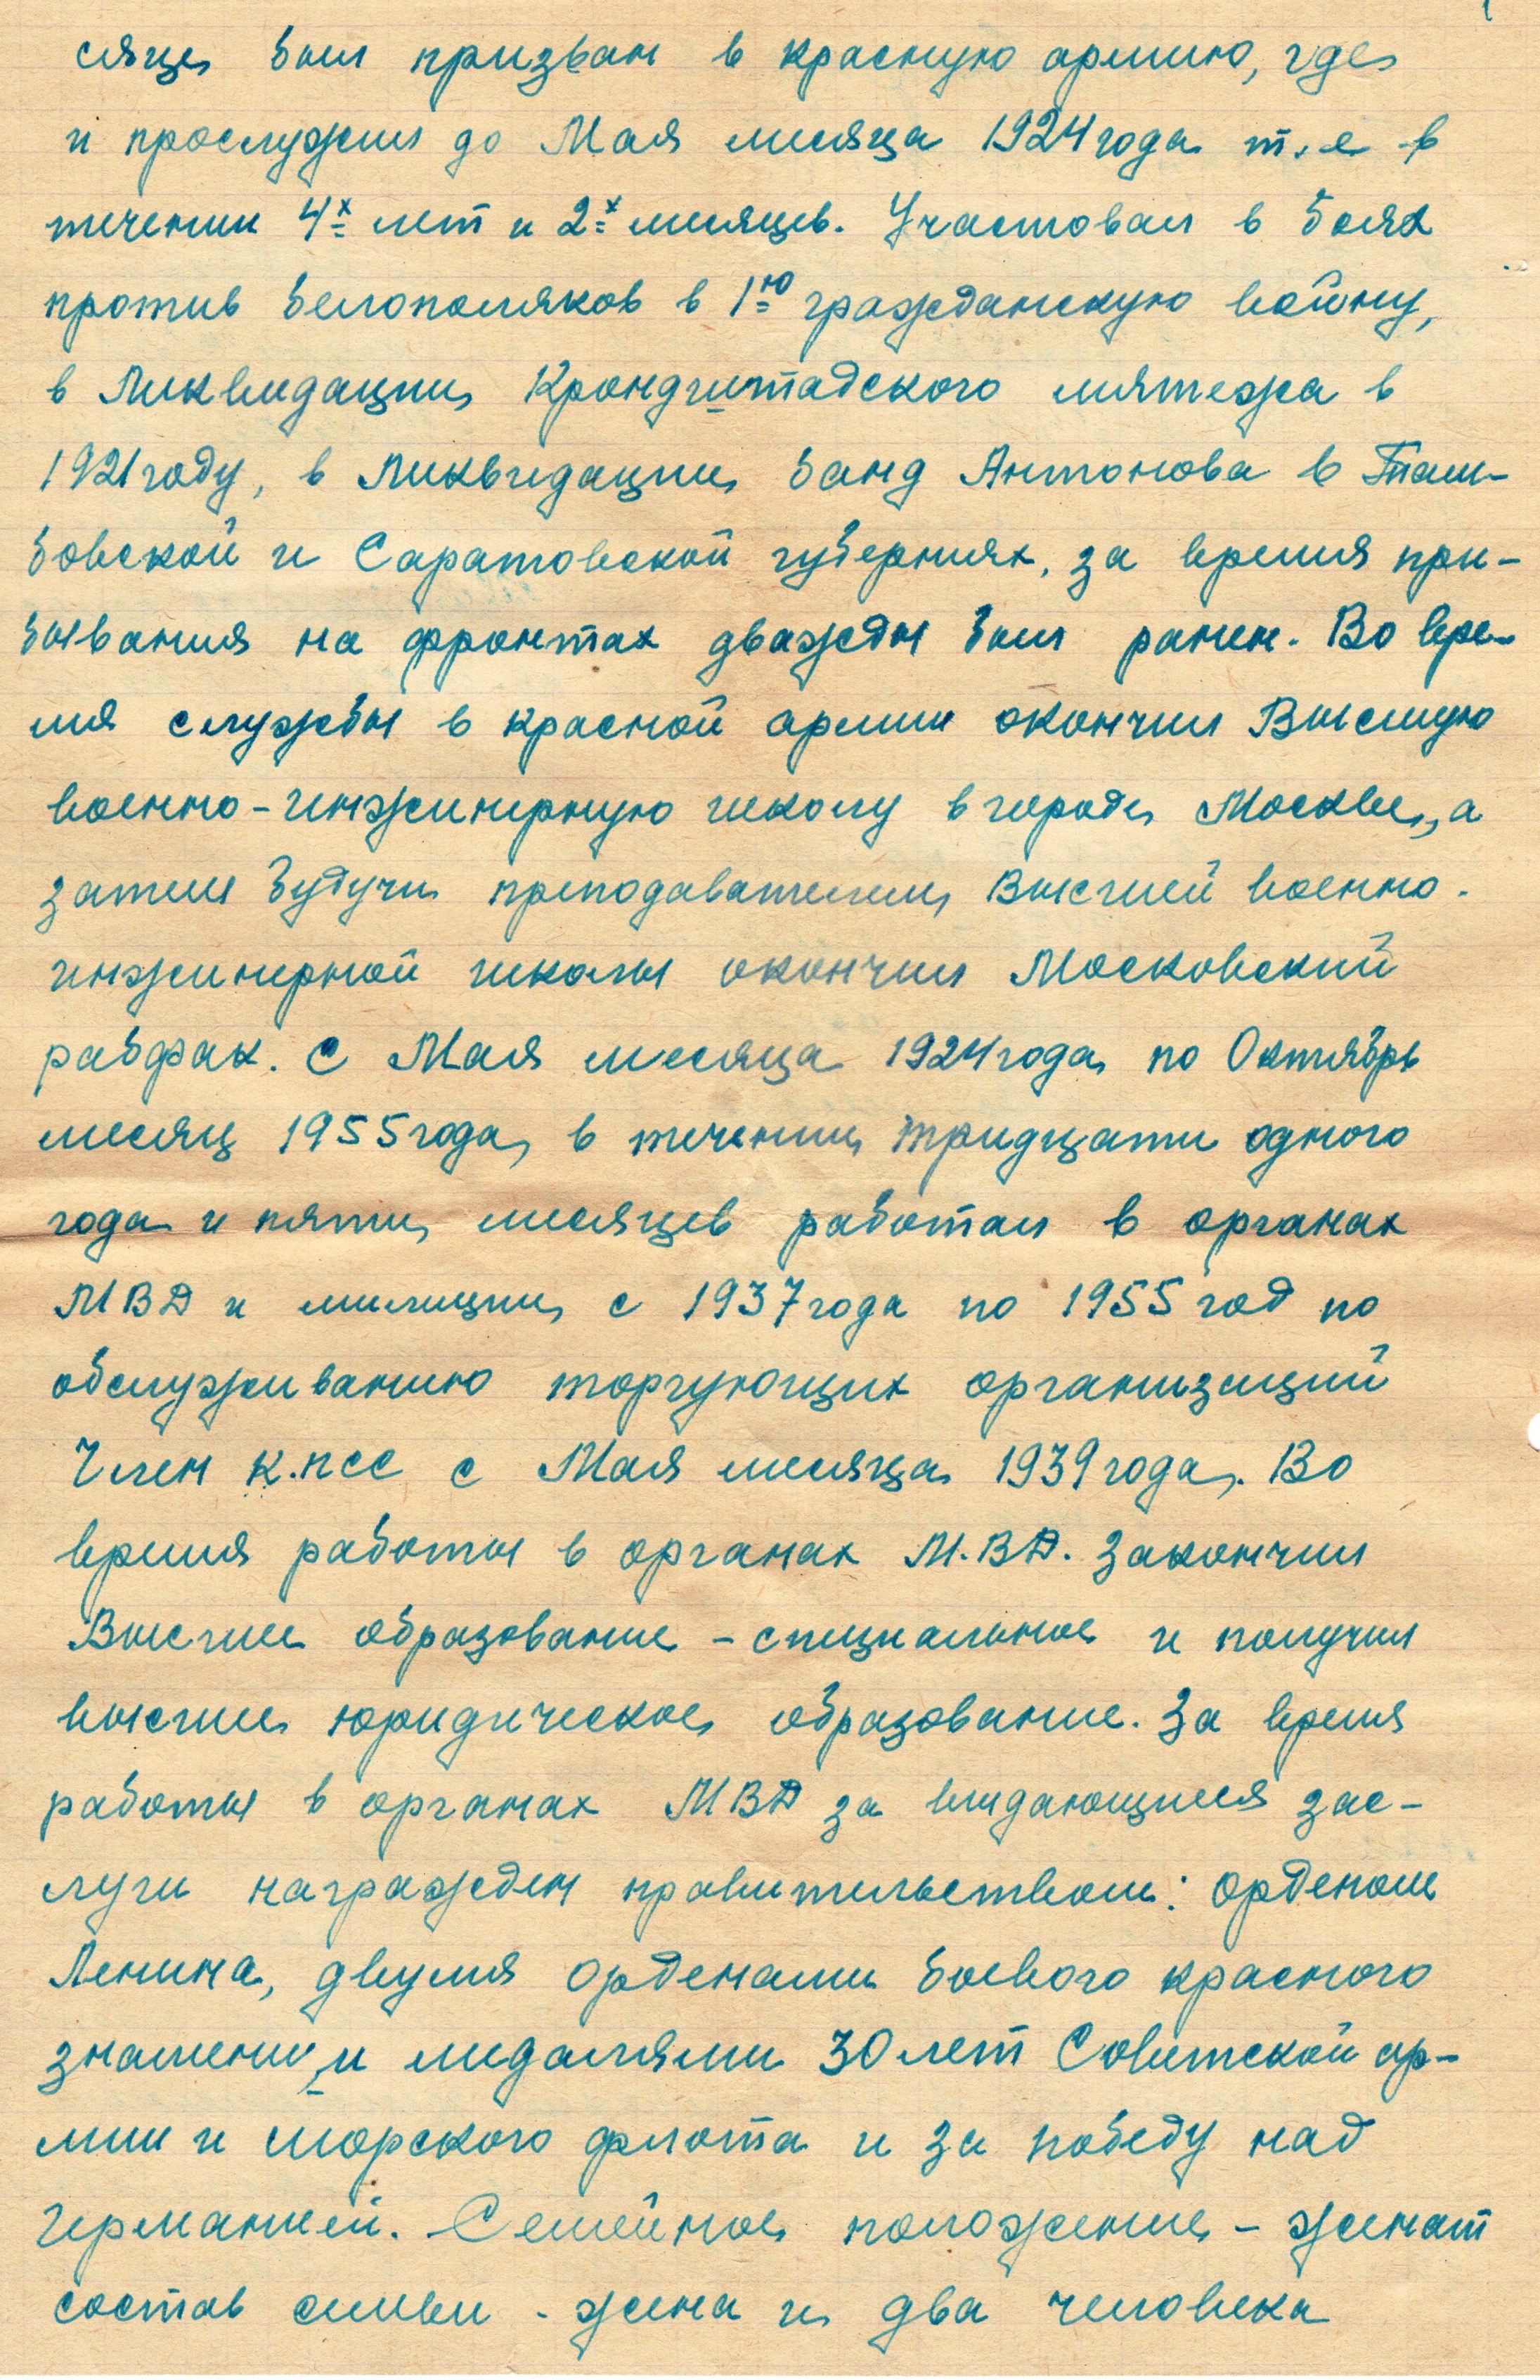 сяце был призван в красную армию, где
и прослужил до Мая месяца 1924 года т.е в
течении 4х лет и 2х месяцев. Участвовал в боях
против белополяков в 1ю гражданскую войну,
в Ликвидации Крондштадского мятежа в
1921 году, в Ликвидации банд Антонова в Там-
бовской и Саратовской губерниях, за время при-
бывания на фронтах дважды был ранен. Во вре-
мя службы в красной армии окончил Высшую
военно-инжинерную школу в городе Москве, а
затем будучи преподавателем Высшей военно-
инжинерной школы окончил Московский
рабфак. С Мая месяца 1924 года по Октябрь
месяц 1955 года, в течении тридцати одного
года и пяти месяцев работал в органах
МВД и милиции с 1937 года по 1955 год по
обслуживанию торгующих организаций
Член К.ПСС с Мая месяца 1939 года. Во
время работы в органах М.ВД. закончил
Высшее образование - специальное и получил
высшее юридическое образование. За время
работы в органах МВД за видающиеся зас-
луги награжден правительством: орденом
Ленина, двумя орденами боевого красного
знамени, и медалями 30 лет Советской ар-
мии и морского флота и за победу над
германией. Семейное положение - женат
состав семьи - жена и два человека